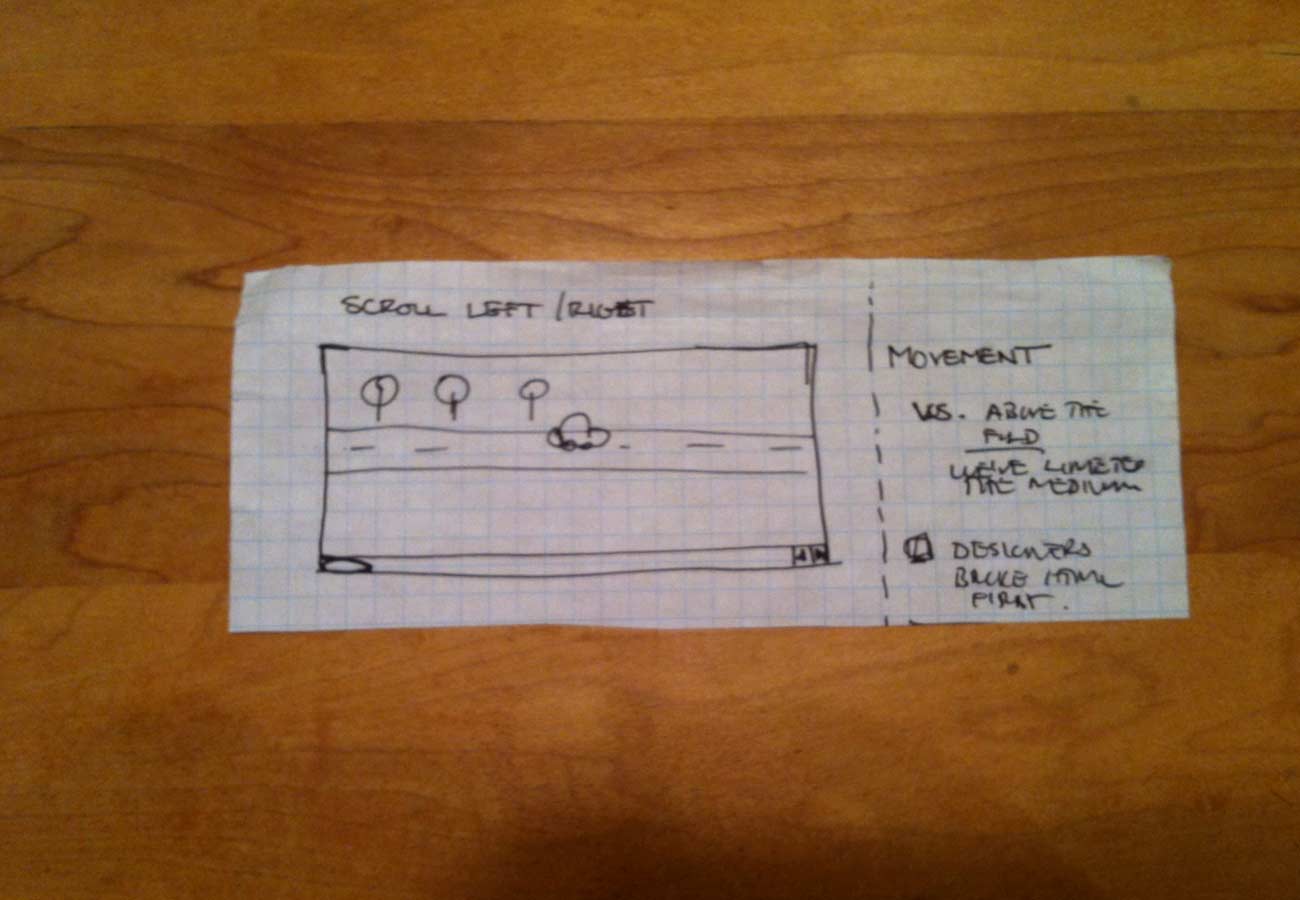 SCROLL LEFT / RIGHT
MOVEMENT
VS. ABOVE THE
FOLD
WE'VE LIMITED
THE MEDIUM
DESIGNERS
BROKE HTML
FIRST.